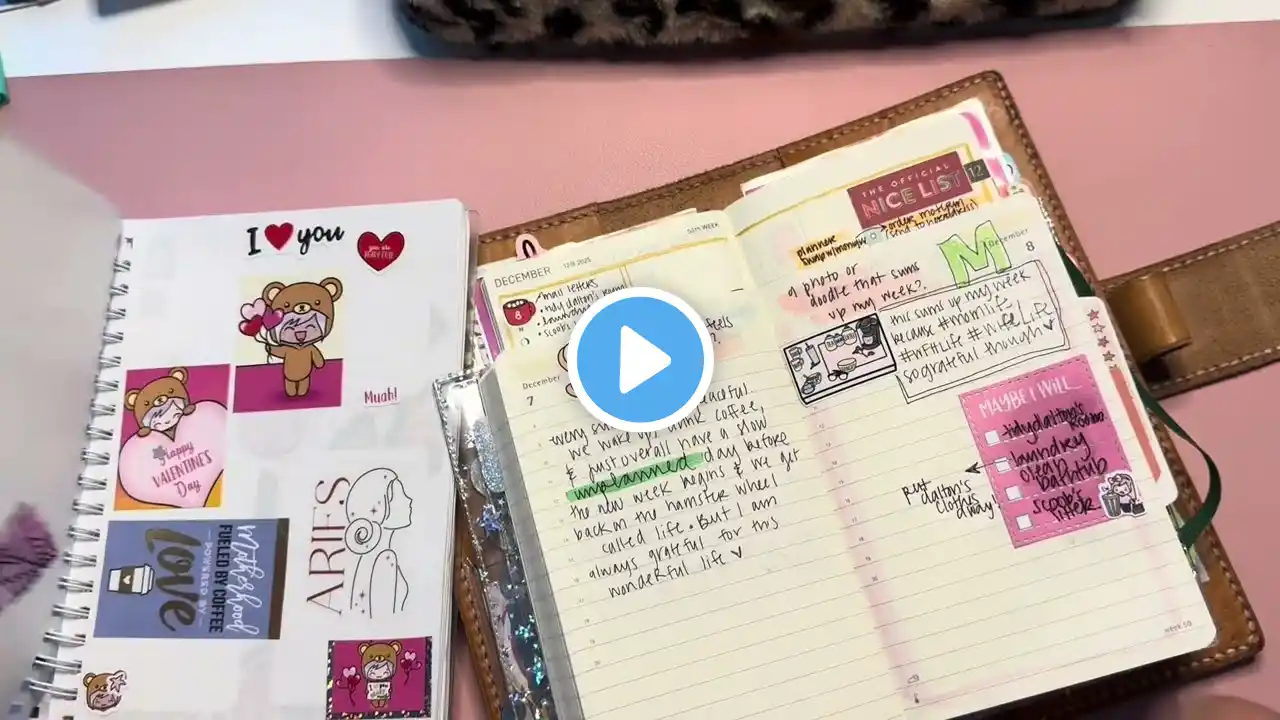 I you
you are
Muah!
Happy
VALENTINE'S
Day
ARIES
Motherhood
FUELED BY COFFEE
POWERED BY
love
DECEMBER
12 2025
mail letters
8
December
7
feels
peaceful
we wake up, drink coffee,
& just overall have a slow
unplanned day before
the new week begins & we get
back on the hamster wheel
called life. But I am
always grateful for this
wonderful life
THE OFFICIAL
NICE LIST
12
planner
December
8
M
a photo or
doodle that sums
up my week?
this sums up my week
because #momlife
#wifelife
so grateful though
MAYBE I WILL...
tidy dalton's room
laundry
clean bathtub
scoop litter
put
dalton's
clothes
away!
WEEK 50